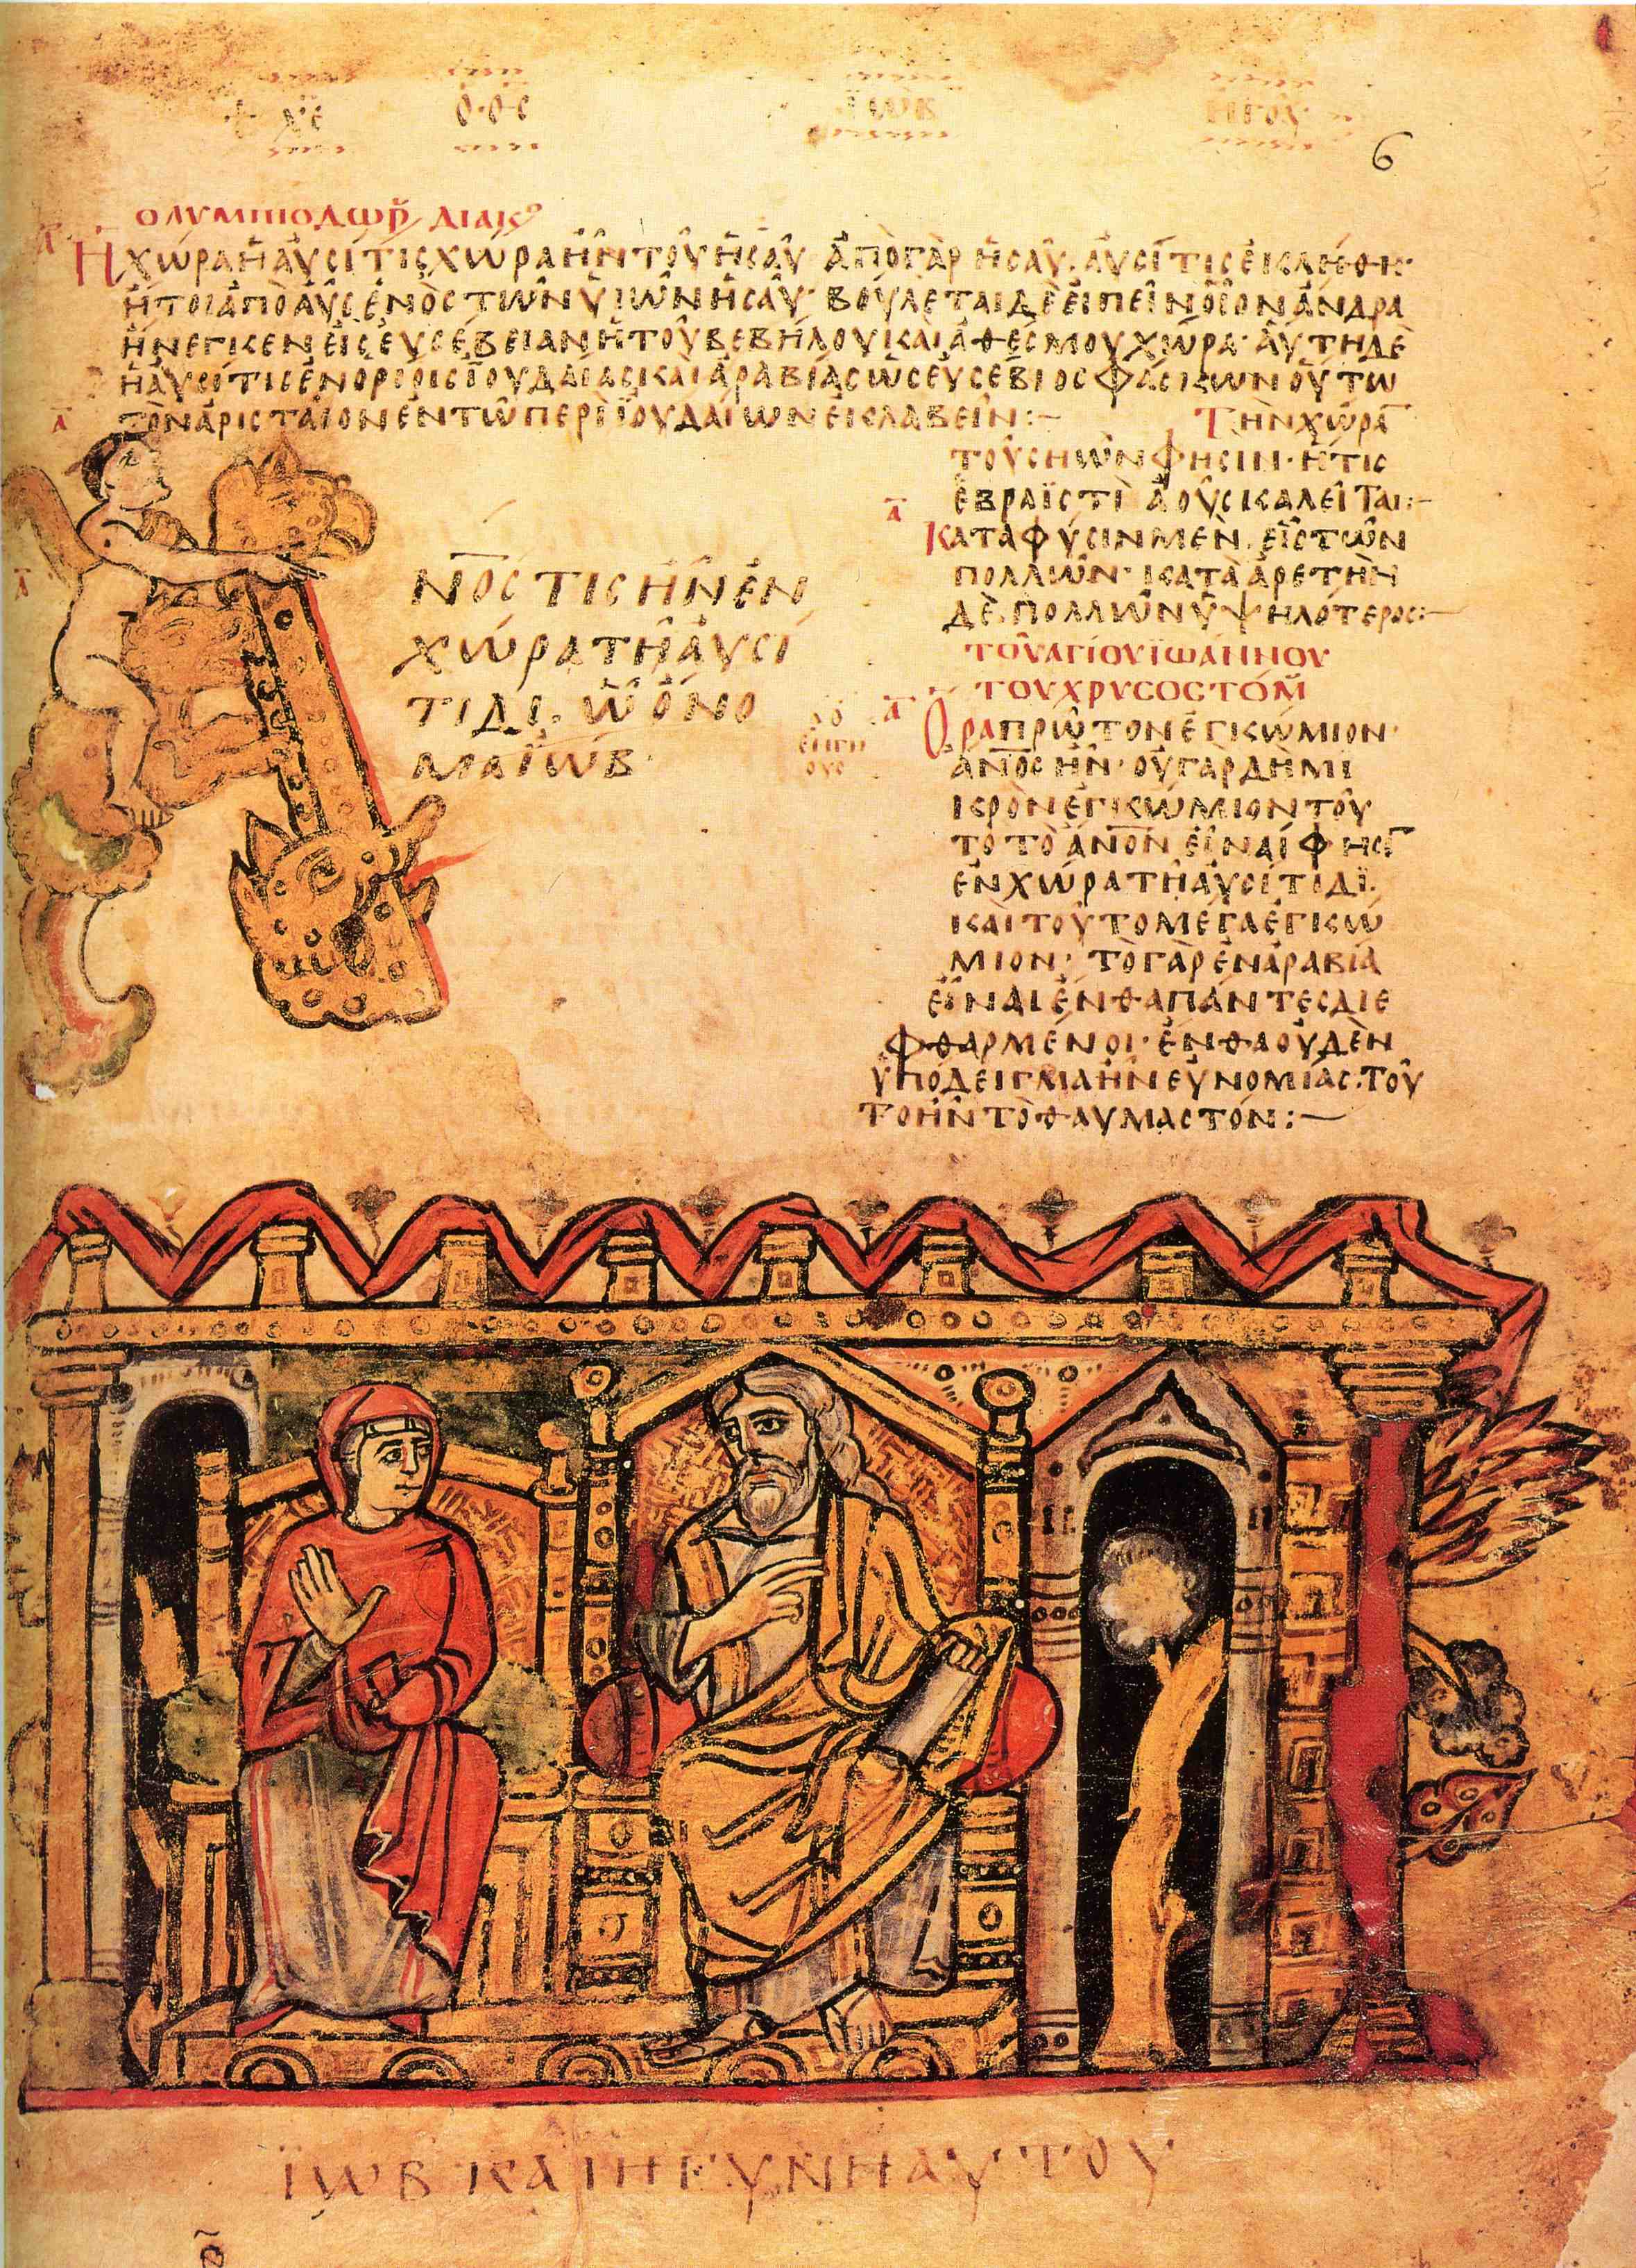 6
ΟΛΥΜΠΙΟΔΩΡ ΔΙΑΚ
Ἡ ΧΩΡΑ Ἡ ΑΥΣΙΤΙΣ ΧΩΡΑ ΗΝ ΤΟΥ ΗΣΑΥ· ΑΠΟ ΓΑΡ ΗΣΑΥ ΑΥΣΙΤΙΣ ΕΚΛΗΘΗ·
ΗΤΟΙ ΑΠΟ ΑΥΣ ΕΝΟΣ ΤΩΝ ΥΙΩΝ ΗΣΑΥ· ΒΟΥΛΕΤΑΙ ΔΕ ΕΙΠΕΙΝ ΟΙΟΝ ΑΝΔΡΑ
ΗΝΕΓΚΕΝ ΕΙΣ ΕΥΣΕΒΕΙΑΝ Η ΤΟΥ ΒΕΒΗΛΟΥ ΚΑΙ ΑΘΕΣΜΟΥ ΧΩΡΑ· ΑΥΤΗ ΔΕ
Η ΑΥΣΙΤΙΣ ΕΝ ΟΡΙΟΙΣ ΙΟΥΔΑΙΑΣ ΚΑΙ ΑΡΑΒΙΑΣ ΩΣ ΕΥΣΕΒΙΟΣ ΦΑΣΚΩΝ ΟΥΤΩ
ΤΟΝ ΑΡΙΣΤΑΙΟΝ ΕΝ ΤΩ ΠΕΡΙ ΙΟΥΔΑΙΩΝ ΕΚΛΑΒΕΙΝ:—
ΤΗΝ ΧΩΡΑ
ΤΟΥ ΣΗΩΝ ΦΗΣΙΝ· ΗΤΙΣ
ΕΒΡΑΪΣΤΙ ΑΟΥΣ ΚΑΛΕΙΤΑΙ:—
ΚΑΤΑ ΦΥΣΙΝ ΜΕΝ ΕΙΣ ΤΩΝ
ΠΟΛΛΩΝ· ΚΑΤΑ ΑΡΕΤΗΝ
ΔΕ ΠΟΛΛΩΝ ΥΨΗΛΟΤΕΡΟΣ:—
ΝΟΣ ΤΙΣ ΗΝ ΕΝ
ΧΩΡΑ ΤΗ ΑΥΣΙ
ΤΙΔΙ. Ω ΟΝΟ
ΜΑ ΪΩΒ·
ΤΟΥ ΑΓΙΟΥ ΪΩΑΝΝΟΥ
ΤΟΥ ΧΡΥΣΟΣΤΟΜ
ΟΡΑ ΠΡΩΤΟΝ ΕΓΚΩΜΙΟΝ·
ΑΝΟΣ ΗΝ· ΟΥ ΓΑΡ ΔΗ ΜΙ
ΚΡΟΝ ΕΓΚΩΜΙΟΝ ΤΟΥ
ΤΟ ΤΟ ΑΝΟΝ ΕΙΝΑΙ ΦΗΣΙ
ΕΝ ΧΩΡΑ ΤΗ ΑΥΣΙΤΙΔΙ.
ΚΑΙ ΤΟΥΤΟ ΜΕΓΑ ΕΓΚΩ
ΜΙΟΝ· ΤΟ ΓΑΡ ΕΝ ΑΡΑΒΙΑ
ΕΙΝΑΙ ΕΝΘΑ ΠΑΝΤΕΣ ΔΙΕ
ΦΘΑΡΜΕΝΟΙ· ΕΝΘΑ ΟΥΔΕΝ
ΥΠΟΔΕΙΓΜΑ ΗΝ ΕΥΝΟΜΙΑΣ. ΤΟΥ
ΤΟ ΗΝ ΤΟ ΘΑΥΜΑΣΤΟΝ:—
ΪΩΒ ΚΑΙ Η ΓΥΝΗ ΑΥΤΟΥ